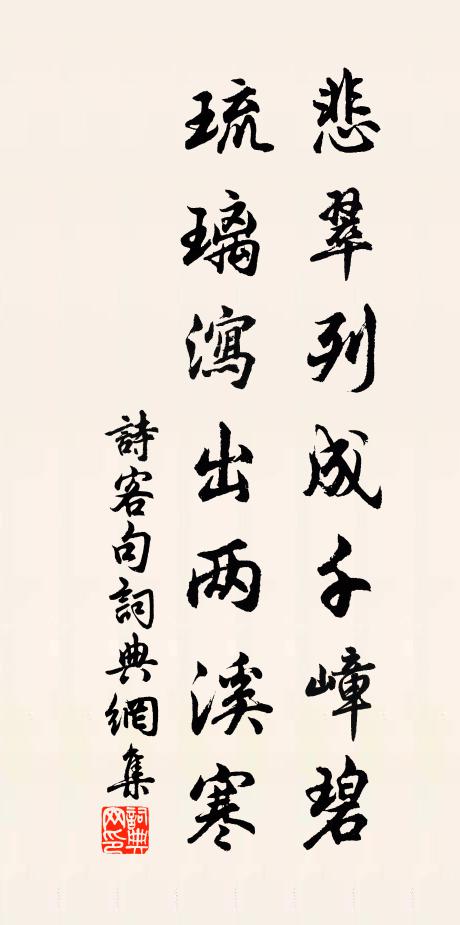 悲翠列成千嶂碧
琉璃瀉出两溪寒
詩客句詞典網集
詞典网印